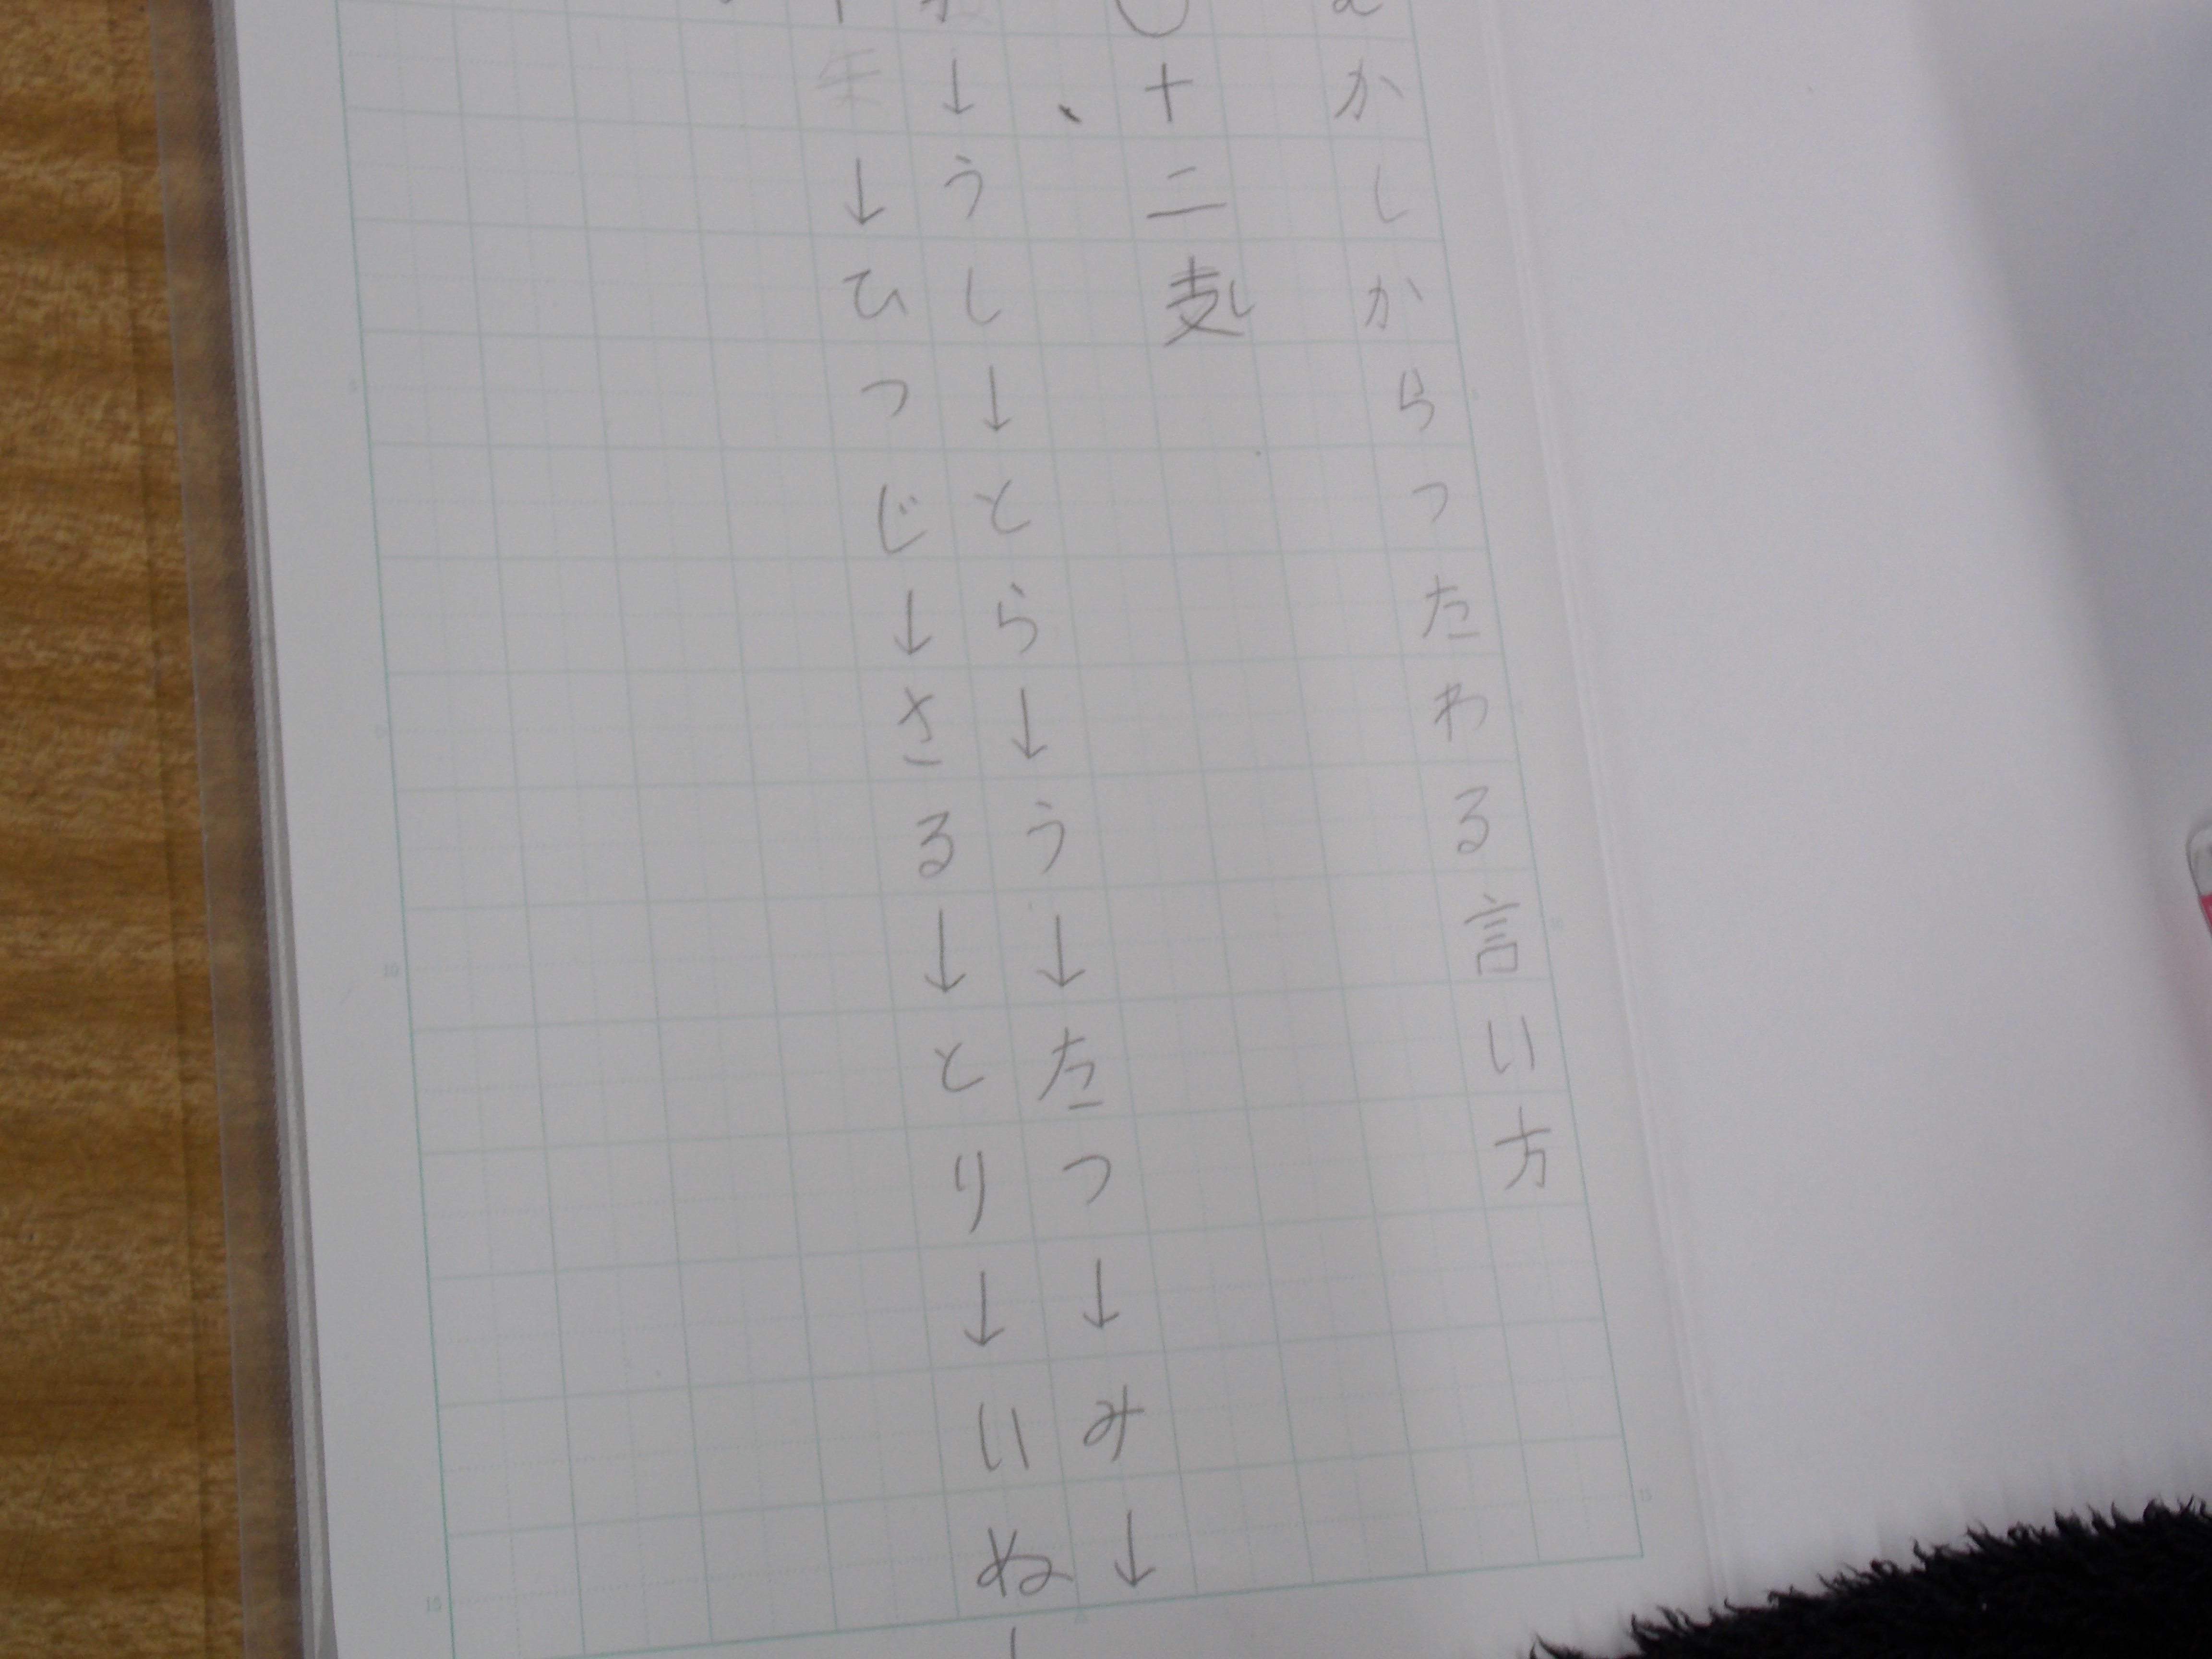 かしからつたわる言い方
十二支
、
↓うし↓とら↓う↓たつ↓み↓
↓ひつじ↓さる↓とり↓いぬ